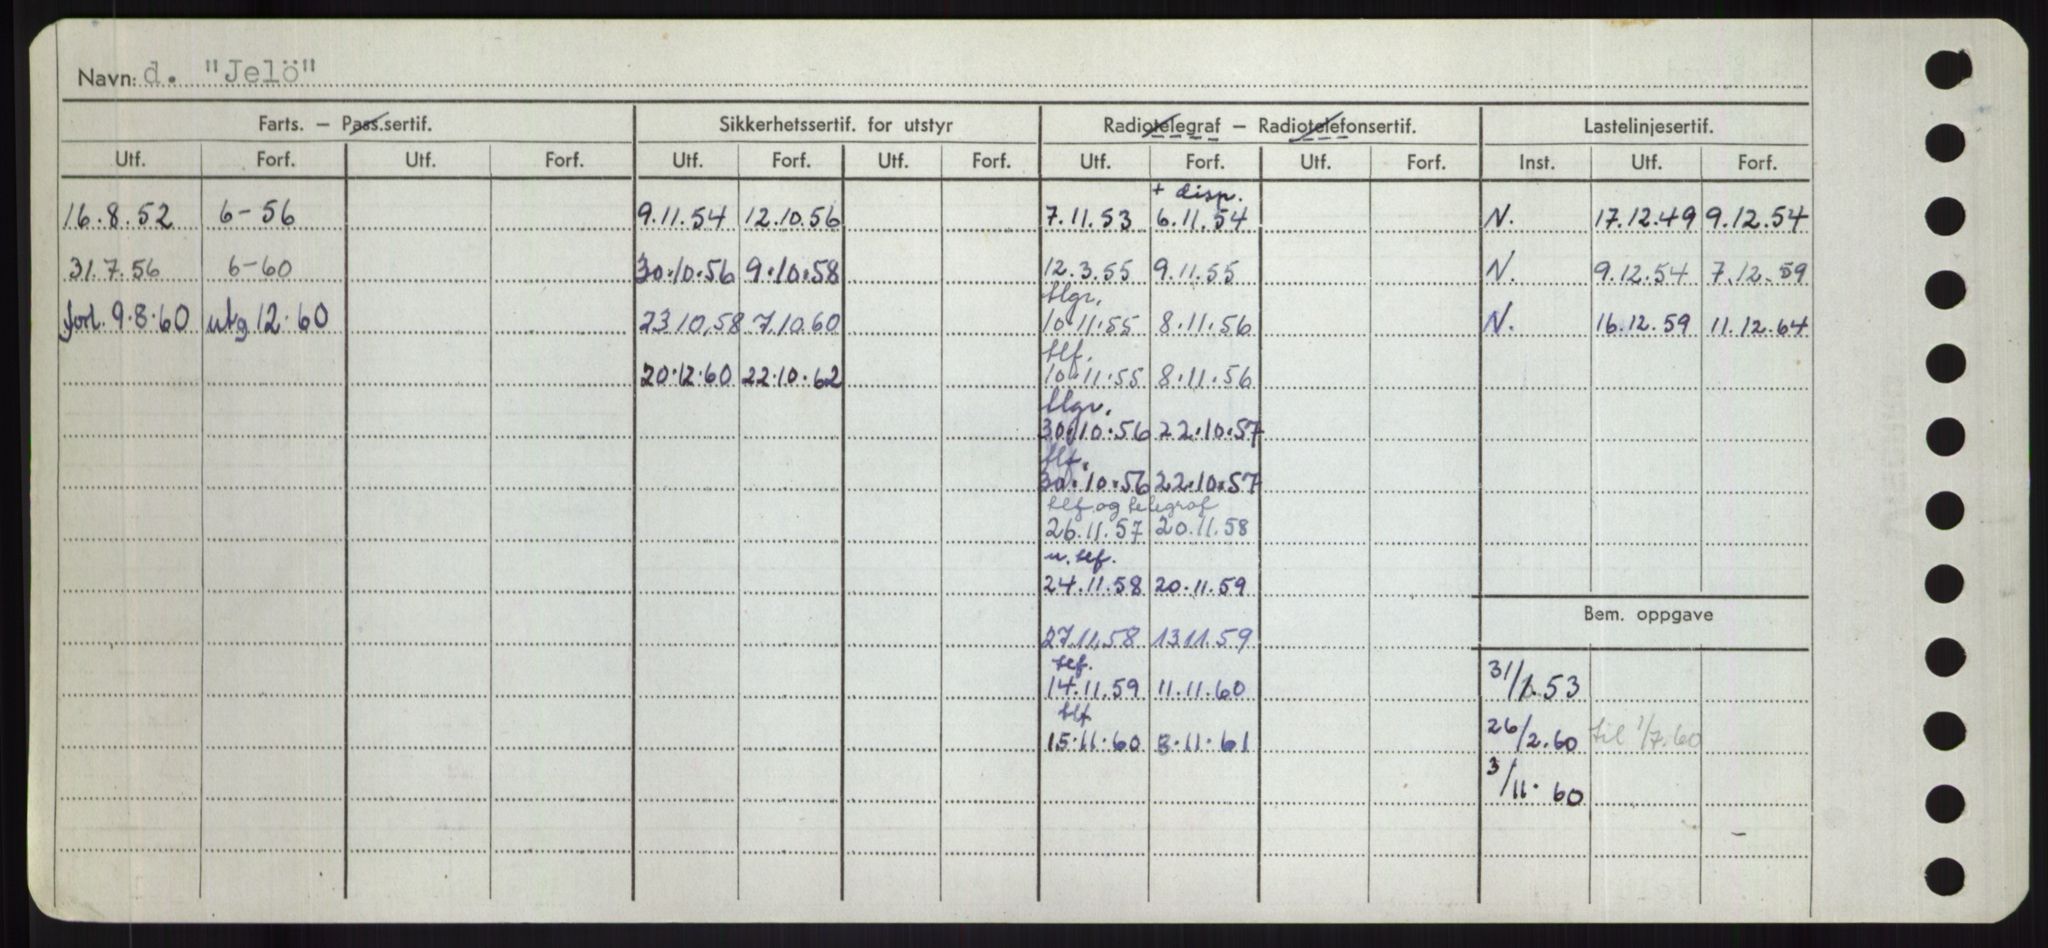 Navn: d. "Jelö"
Farts. — Pass.sertif. Sikkerhetssertif. for utstyr Radiotelegraf — Radiotelefonsertif. Lastelinjesertif.
Utf. Forf. Utf. Forf. Utf. Forf. Utf. Forf. Utf. Forf. Utf. Forf. Inst. Utf. Forf.
+ disp.
16.8.52 6-56 9.11.54 12.10.56 7.11.53 6.11.54 N. 17.12.49 9.12.54
31.7.56 6-60 30.10.56 9.10.58 12.3.55 9.11.55 N. 9.12.54 7.12.59
tlgr.
forl. 9.8.60 utg 12.60 23.10.58 7.10.60 10.11.55 8.11.56 N. 16.12.59 11.12.64
tlf.
20.12.60 22.10.62 10.11.55 8.11.56
tlgr.
30.10.56 22.10.57
tlf.
30.10.56 22.10.57
tlf og telegraf
26.11.57 20.11.58
u. tlf.
24.11.58 20.11.59
Bem. oppgave
27.11.58 13.11.59
tlf.
14.11.59 11.11.60 31/1.53
tlf
15.11.60 3.11.61 26/2.60 til 1/7.60
3/11.60